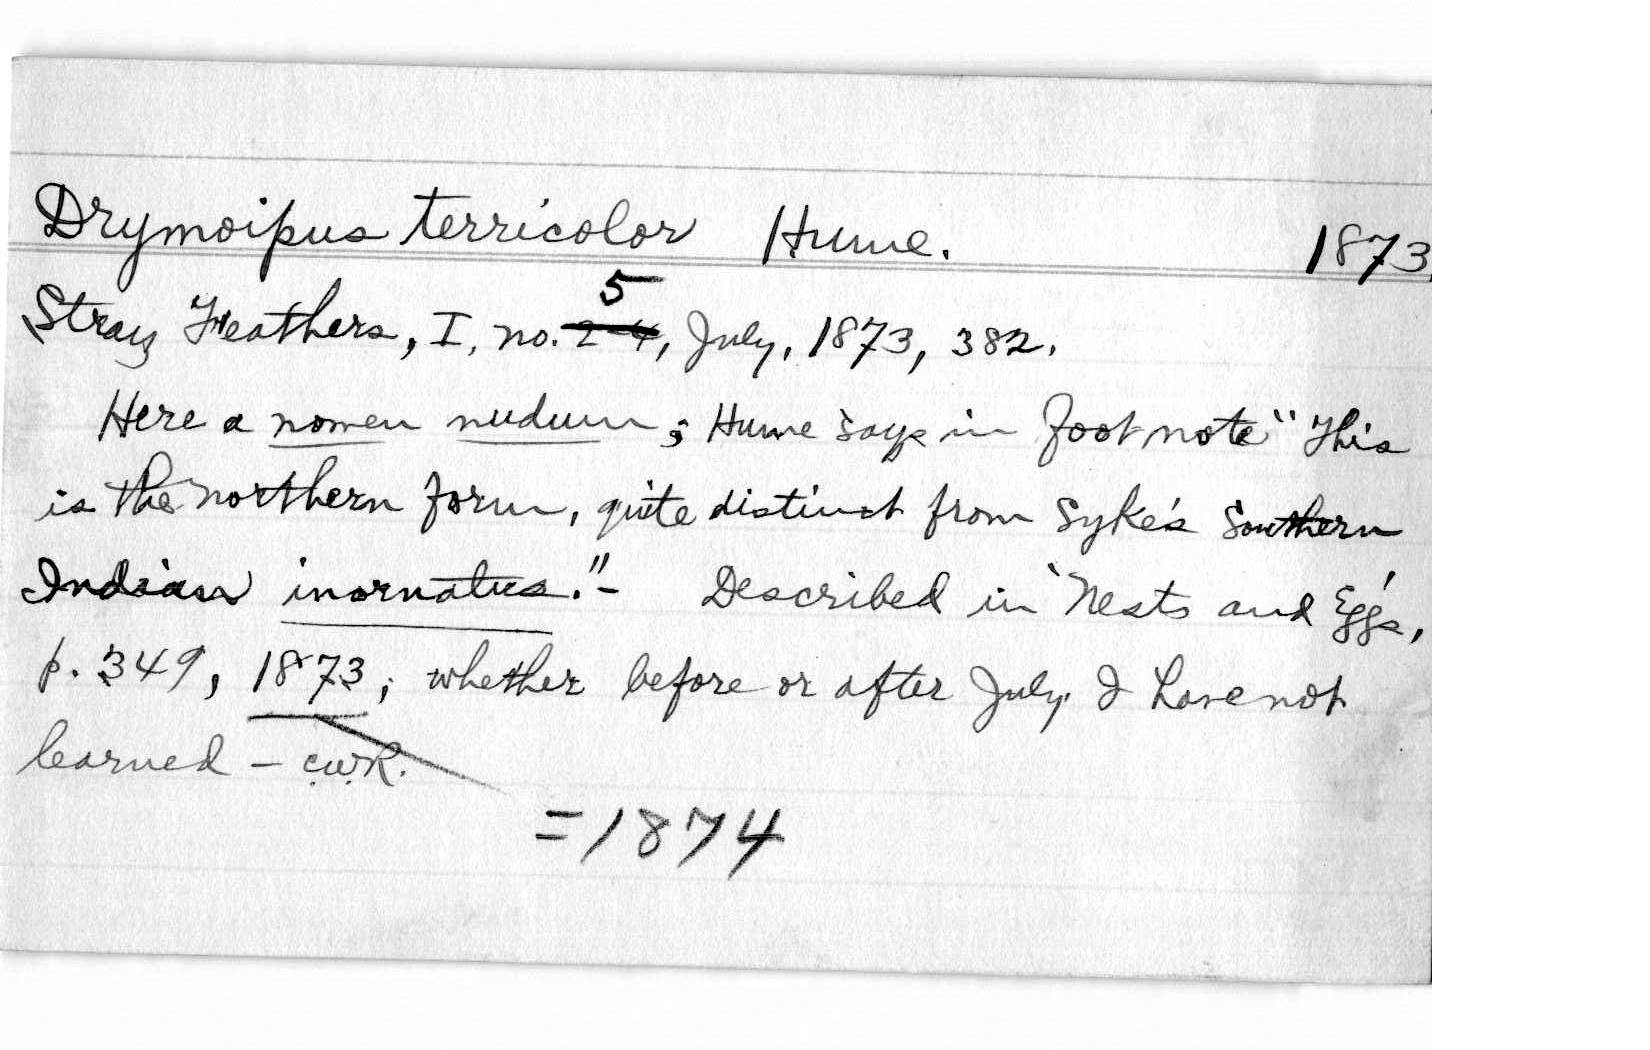 Drymoipus terricolor Hume. 1873.
Stray Feathers, I, no. 2-4 5, July, 1873, 382.
Here a nomen nudum; Hume says in foot note "This
is the northern form, quite distinct from Syke's Southern
Indian inornatus." - Described in 'Nests and Eggs',
p. 349, 1873; whether before or after July I have not
learned - C.W.R.
= 1874